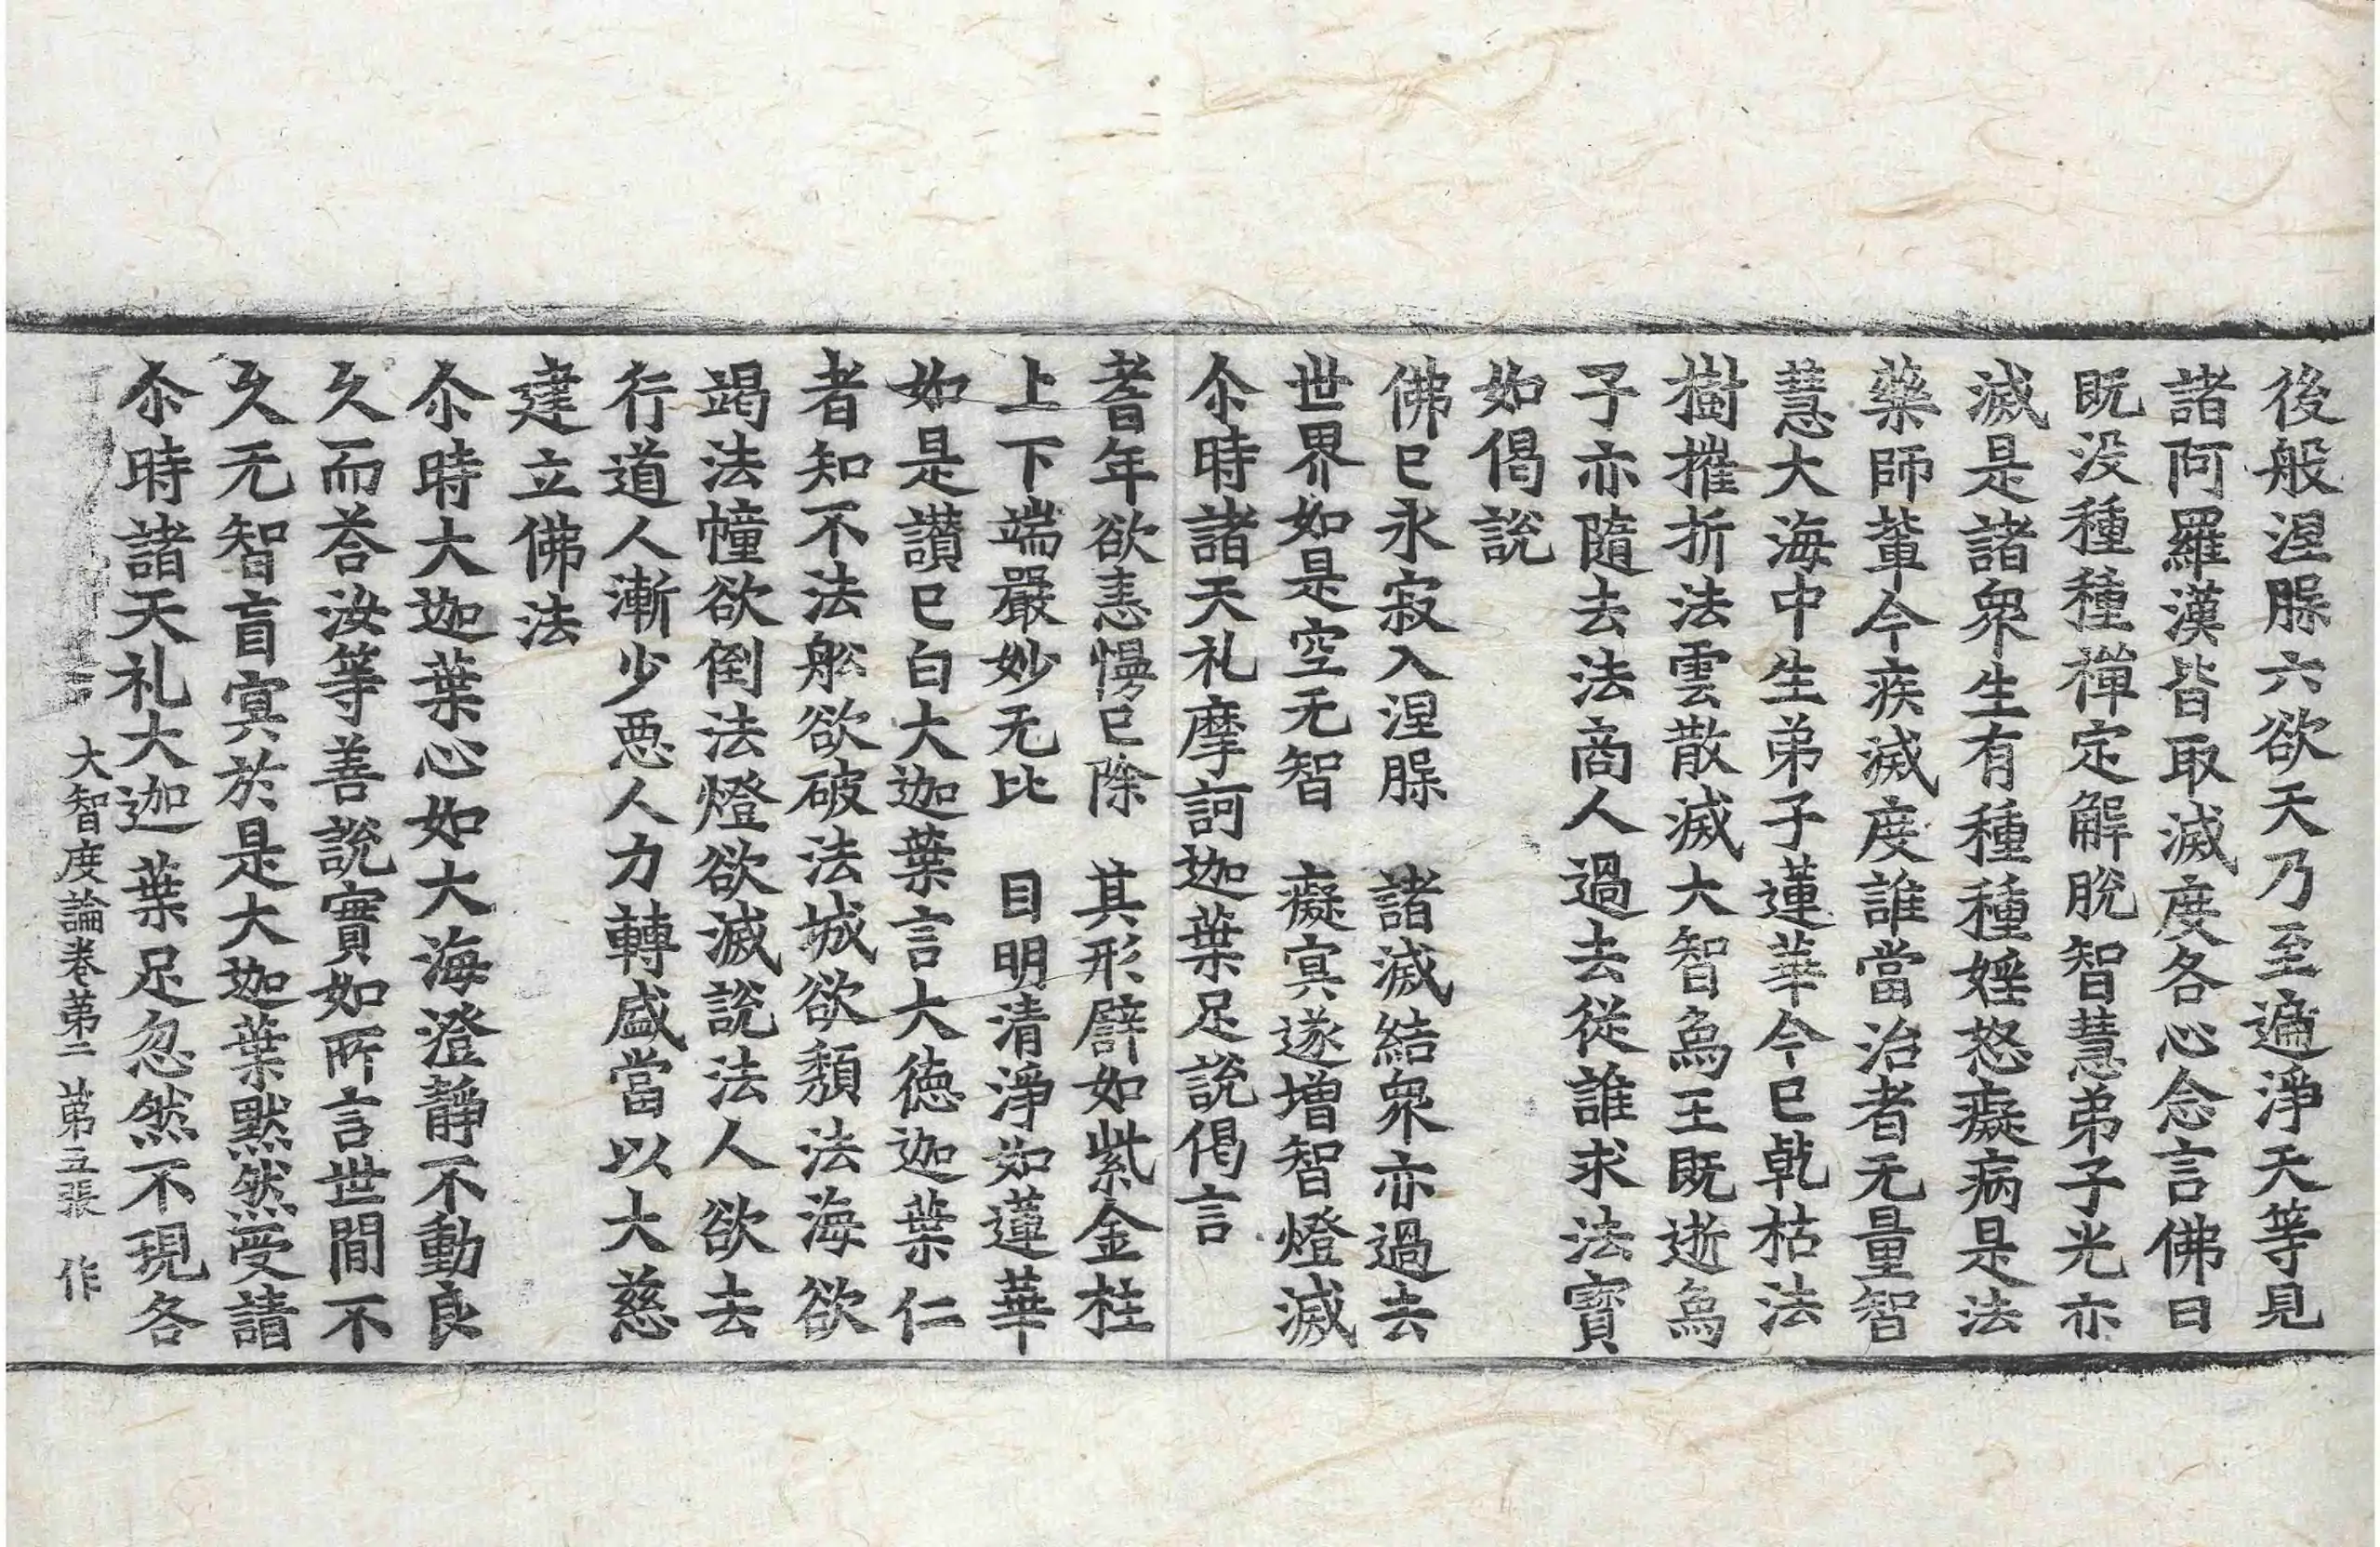 後般涅脲六欲天乃至遍淨天等見
諸阿羅漢皆取滅度各心念言佛日
既没種種禪定解脫智慧弟子光亦
滅是諸衆生有種種婬怒癡病是法
藥師輩今疾滅度誰當治者无量智
慧大海中生弟子蓮華今已乾枯法
樹摧折法雲散滅大智爲王既逝爲
子亦隨去法商人過去從誰求法寶
如偈說
佛已永寂入涅脲　諸滅結衆亦過去
世界如是空无智　癡冥遂增智燈滅
尒時諸天礼摩訶迦葉足說偈言
耆年欲恚慢已除　其形譬如紫金柱
上下端嚴妙无比　目明清淨如蓮華
如是讃已白大迦葉言大徳迦葉仁
者知不法舩欲破法城欲頹法海欲
竭法幢欲倒法燈欲滅說法人欲去
行道人漸少惡人力轉盛當以大慈
建立佛法
尒時大迦葉心如大海澄靜不動良
久而荅汝等善說實如所言世間不
久无智盲冥於是大迦葉黙然受請
尒時諸天礼大迦葉足忽然不現各
大智度論卷第二　第五張　作